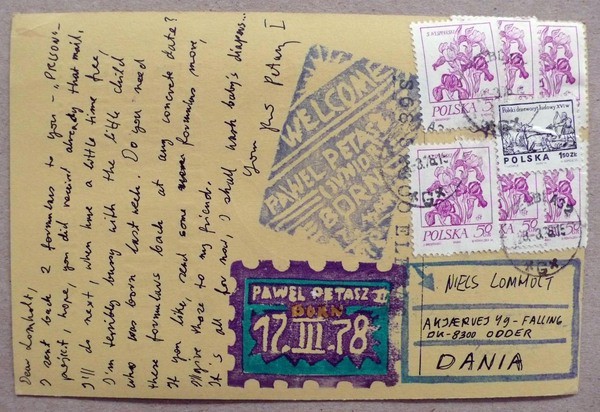 Dear Lomholt,
I sent back 2 formulars to you - „PRISONS-
project, I hope, you did receive already that mail.
I'll do next, when have a little time free!
I'm terribly bussy with the little child
who was born last week. Do you need
these formulars back at any concrete date?
If you like, send some more formulars more,
these to my friends.
It's all for now, I shall wash baby's diapers...
Your Petasz I
WELCOME
PAWEL PETASZ
JUNIOR
BORN
PAWEL PETASZ II
BORN
12.III.78
POLSKA 50
POLSKA 50
POLSKA 50
POLSKA 50
Polski drzeworyt ludowy XVI w.
POLSKA 1.50 ZŁ
ELBLĄG 2
NIELS LOMHOLT
AKJÆRVEJ 49-FALLING
DK-8300 ODDER
DANIA